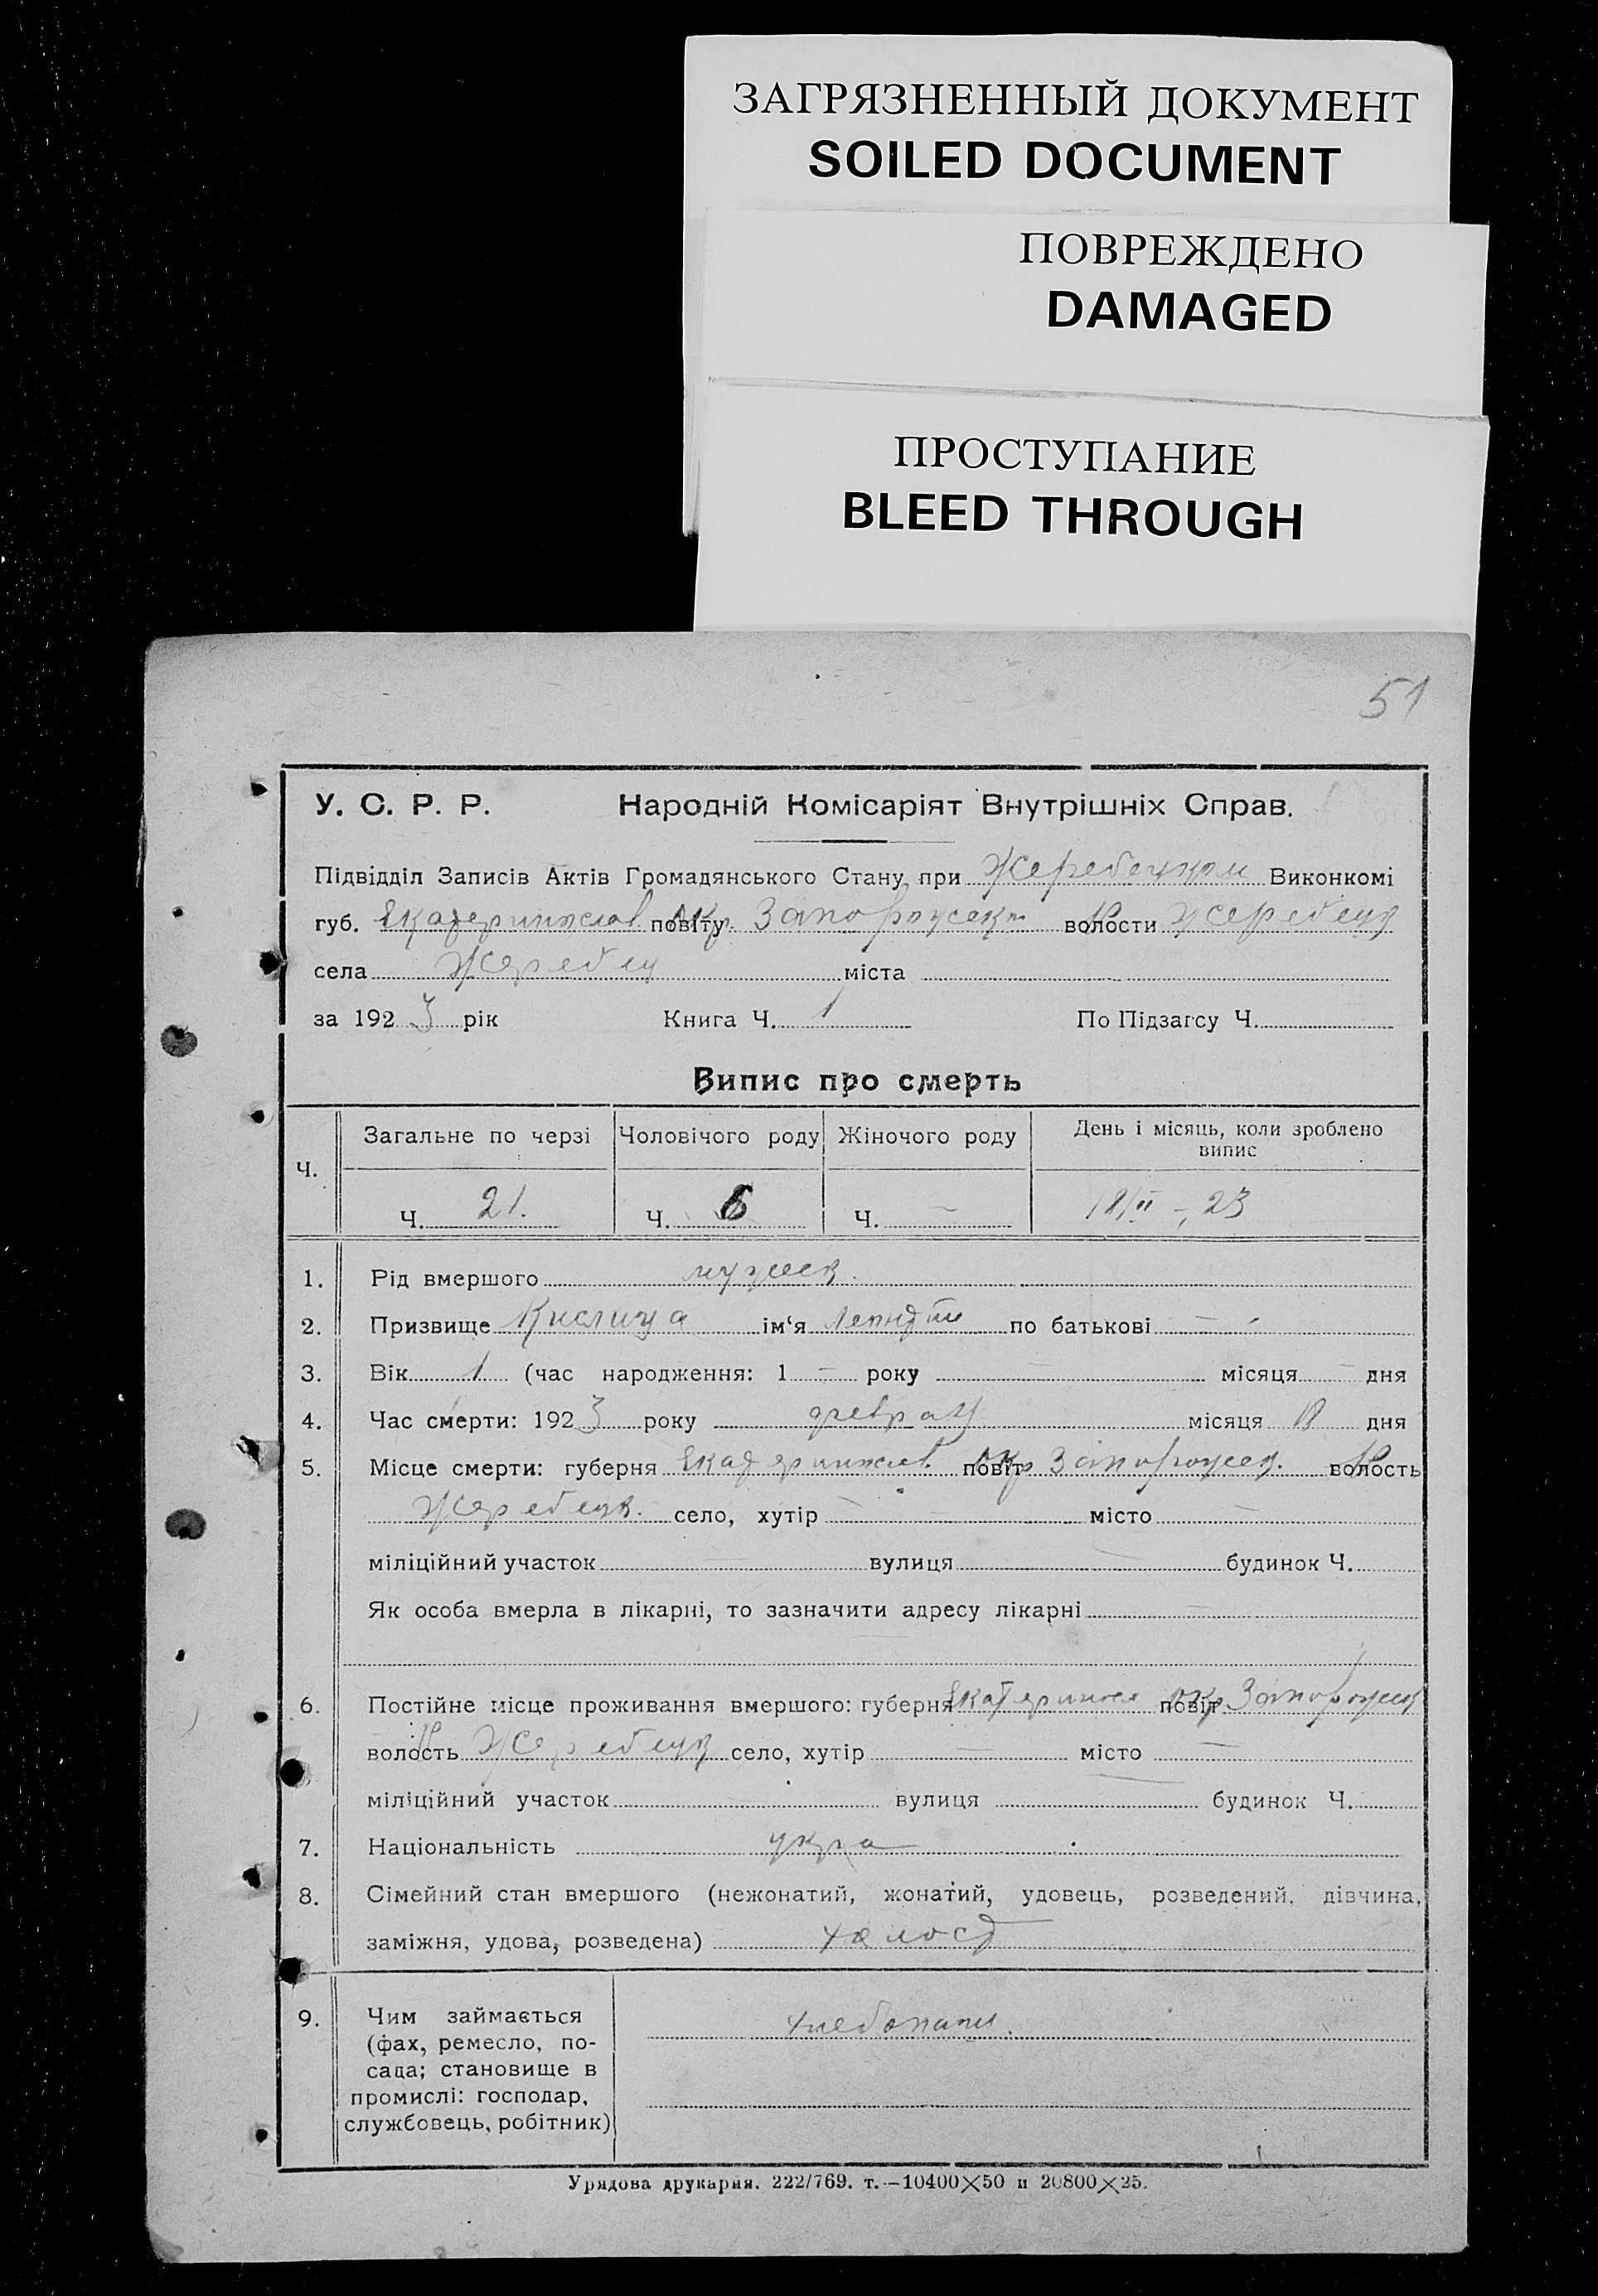 ЗАГРЯЗНЕННЫЙ ДОКУМЕНТ
SOILED DOCUMENT
ПОВРЕЖДЕНО
DAMAGED
ПРОСТУПАНИЕ
BLEED THROUGH
51
У. С. Р. Р. Народній Комісаріят Внутрішніх Справ.
Підвідділ Записів Актів Громадянського Стану при Виконкомі
губ. Екатериносл. повіту окр. Запорожск волости Жеребецк
села Жеребец міста
за 1923 рік Книга Ч. 1 По Підзагсу Ч.
Випис про смерть
Ч. Загальне по черзі Чоловічого роду Жіночого роду День і місяць, коли зроблено випис
Ч. 21. Ч. 6 Ч. — 18/II –, 23
1. Рід вмершого мужск.
2. Призвище Кислица ім‘я по батькові —
3. Вік 1 (час народження: 1 — року — місяця — дня
4. Час смерти: 1923 року февраля місяця дня
5. Місце смерти: губерня Екатериносл. повіт окр Запорожск. волость
Жеребецк. село, хутір — місто —
міліційний участок — вулиця — будинок Ч.
Як особа вмерла в лікарні, то зазначити адресу лікарні —
6. Постійне місце проживання вмершого: губерня Екатеринос повіт окр Запорожск
волость Жеребецк село, хутір — місто —
міліційний участок — вулиця будинок Ч.
7. Національність укра
8. Сімейний стан вмершого (нежонатий, жонатий, удовець, розведений, дівчина,
заміжня, удова, розведена) холост
9. Чим займається
(фах, ремесло, по-
сада; становище в
промислі: господар,
службовець, робітник)
хлебопаш.
Урядова друкарня. 222/769. т.—10400×50 и 20800×25.